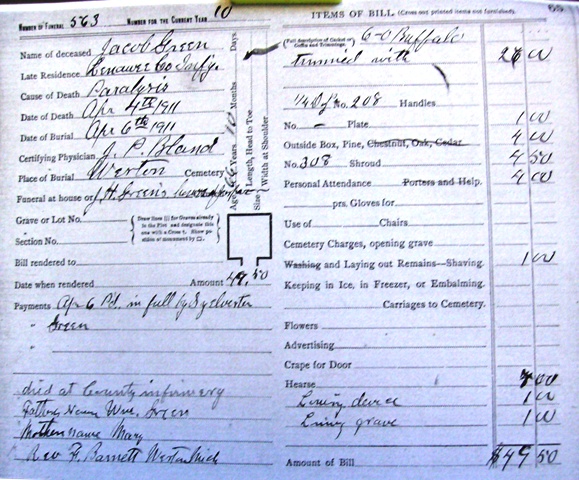 NUMBER OF FUNERAL 563 NUMBER FOR THE CURRENT YEAR 10
Name of deceased Jacob Green
Late Residence Lenawee Co Infy.
Cause of Death Paralysis
Date of Death Apr 4th 1911
Date of Burial Apr 6th 1911
Certifying Physician J. P. Bland
Place of Burial Weston Cemetery
Funeral at house of J. H. Green's
Grave or Lot No.
Section No.
Draw lines for Graves already in the Plot and designate this one with a Cross †. Show position of monument by □.
Bill rendered to
Date when rendered Amount 49.50
Payments Apr 6 Pd. in full by Sylvester
" Green
"
died at County infirmery
Fathers Name Wm. Green
Mothers name Mary
Rev F. Barnett Weston Mich
Age 66 Years 10 Months Days.
Length, Head to Toe.
Size Width at Shoulder
ITEMS OF BILL (Cross out printed items not furnished).
(Full description of Casket or Coffin and Trimmings.) 6-0 Buffalo
trimmed with 26 00
1/4 D of No. 208 Handles
No. – Plate 1 00
Outside Box, Pine, Chestnut, Oak, Cedar. 4 00
No. 308 Shroud 4 50
Personal Attendance Porters and Help. 4 00
prs. Gloves for
Use of Chairs
Cemetery Charges, opening grave
Washing and Laying out Remains—Shaving. 1 00
Keeping in Ice, in Freezer, or Embalming.
Carriages to Cemetery.
Flowers
Advertising
Crape for Door
Hearse 7 00
device 1 00
Lining grave 1 00
Amount of Bill $49 50